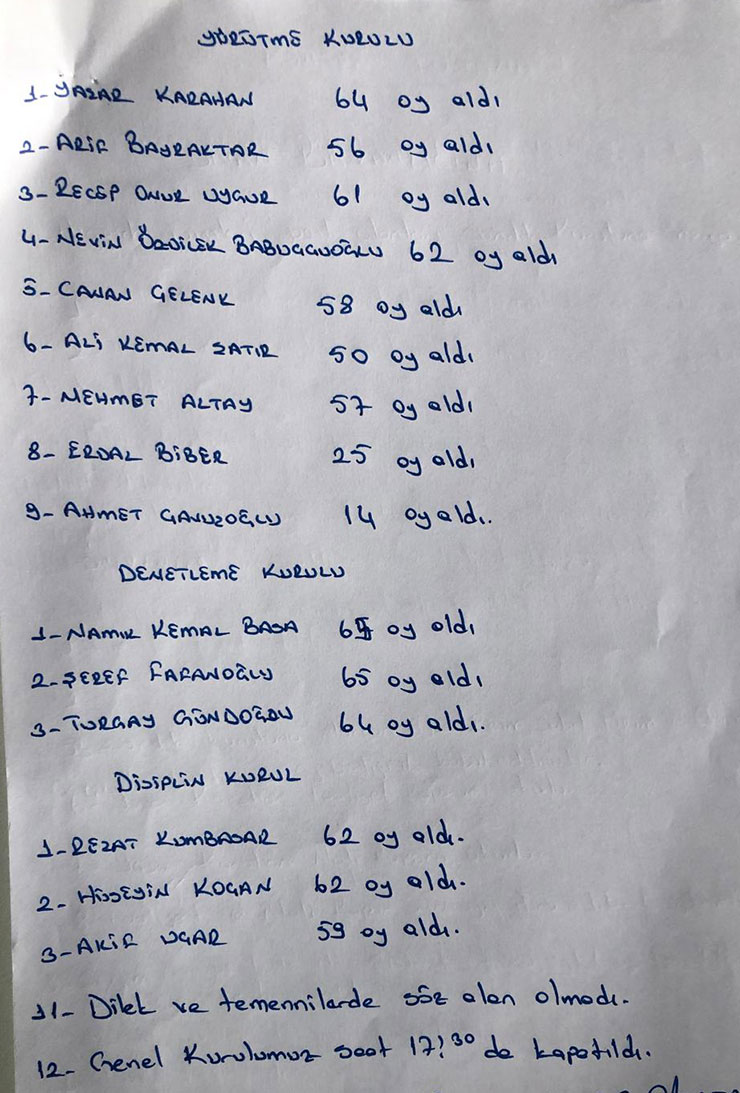 YÖRÜTME KURULU
1- YAŞAR KARAHAN 64 oy aldı
2- ARİF BAYRAKTAR 56 oy aldı
3- RECEP ONUR UYGUR 61 oy aldı
4- NEVİN ÖZDİLEK 62 oy aldı
5- CANAN GELENK 58 oy aldı
6- ALİ KEMAL SATIR 50 oy aldı
7- MEHMET ALTAY 57 oy aldı
8- ERDAL BİBER 25 oy aldı
9- AHMET 14 oy aldı.
DENETLEME KURULU
1- NAMIK KEMAL BASA oy aldı
2- ŞEREF FAFANOĞLU 65 oy aldı
3- TURGAY GÜNDOĞDU 64 oy aldı.
DİSİPLİN KURUL
1- REZAT KUMBASAR 62 oy aldı.
2- HÜSEYİN KOÇAN 62 oy aldı.
3- AKİF UÇAR 59 oy aldı.
11- Dilek ve temennilerde söz alan olmadı.
12- Genel Kurulumuz saat 17:30 da kapatıldı.